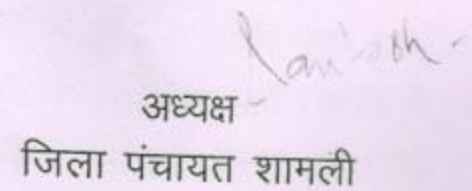 अध्यक्ष
जिला पंचायत शामली